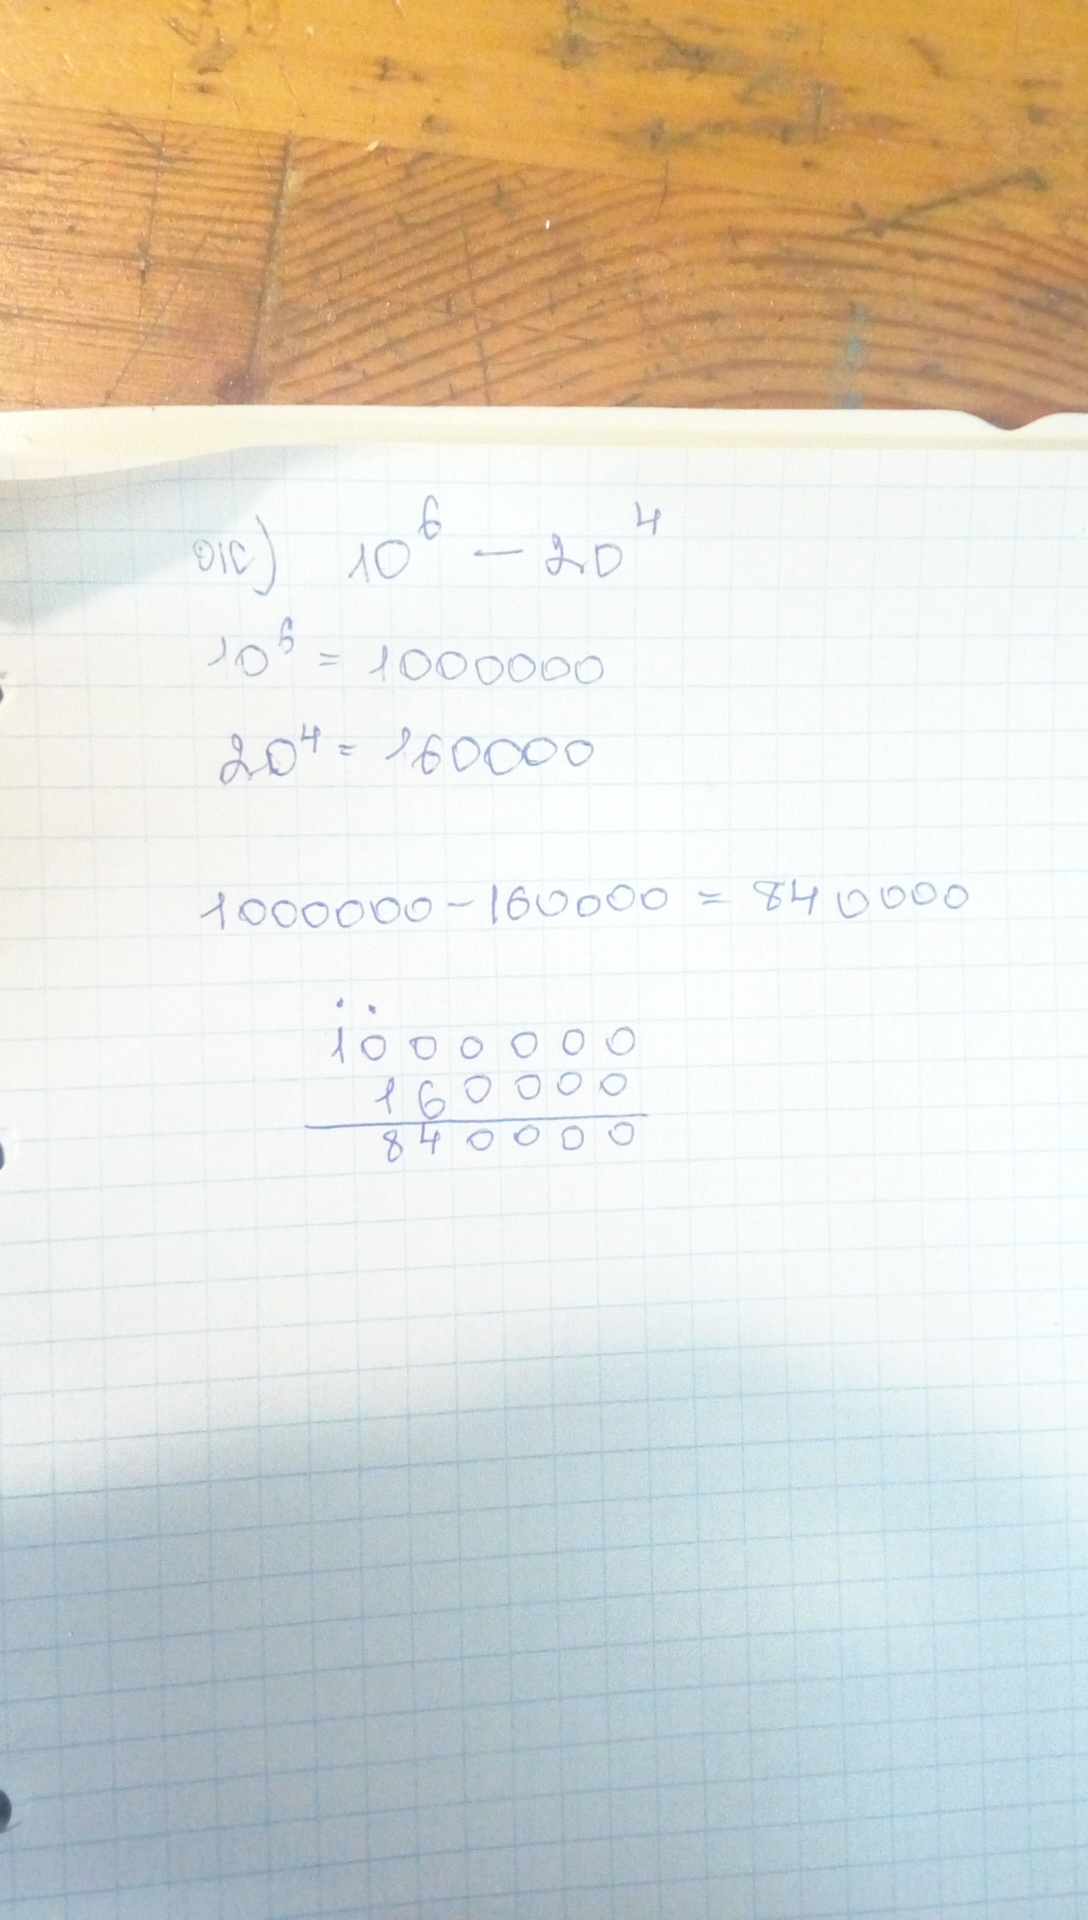 ж) 10⁶ - 20⁴
10⁶ = 1000000
20⁴ = 160000
1000000 - 160000 = 840000
1000000
160000
840000